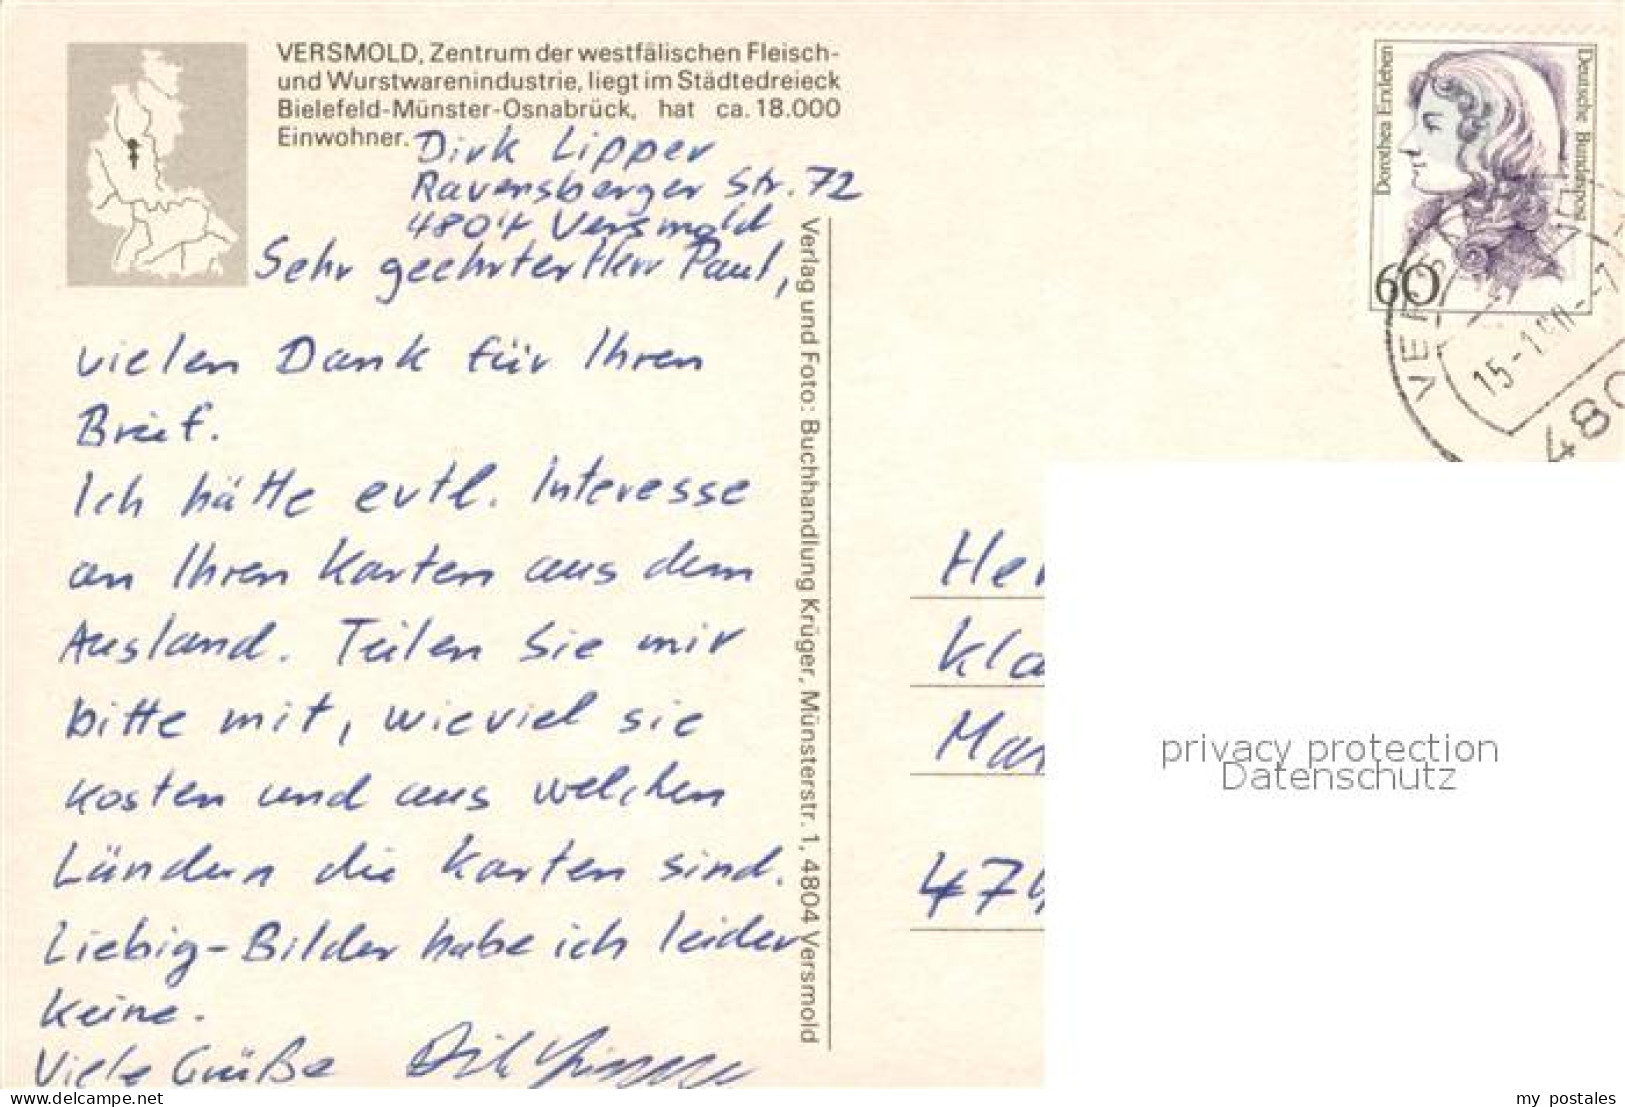 VERSMOLD, Zentrum der westfälischen Fleisch-
und Wurstwarenindustrie, liegt im Städtedreieck
Bielefeld-Münster-Osnabrück, hat ca. 18.000
Einwohner.
Dirk Lipper
Ravensberger Str. 72
4804 Versmold
Sehr geehrter Herr Paul,
vielen Dank für Ihren
Brief.
Ich hätte evtl. Interesse
an Ihren Karten aus dem
Ausland. Teilen Sie mir
bitte mit, wieviel sie
kosten und aus welchen
Ländern die Karten sind.
Liebig-Bilder habe ich leider
keine.
Viele Grüße
Verlag und Foto: Buchhandlung Krüger, Münsterstr. 1, 4804 Versmold
Dorothea Erxleben
Deutsche Bundespost
60
VERSMOLD
15-1
480
Her
Kla
Mar
474
privacy protection
Datenschutz
delcampe.net
my_postales